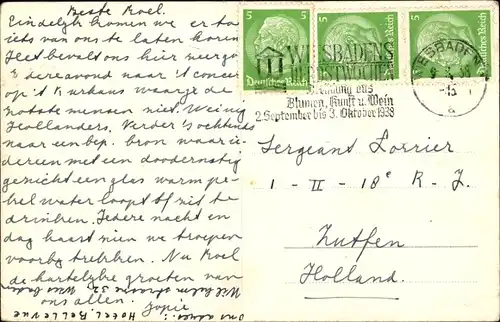 Beste Roel.
Eindelijk komen we er toe
iets van ons te laten horen
Het bevalt ons hier
Iedere avond naar 't concert
op 't Kurhaus waar je de
notate mensen ziet. Weinig
Hollanders. Verder 's ochtends
naar een bep. bron waar ie-
dereen met een doodernstig
gezicht een glas warm
water loopt
drinken. Iedere nacht en
dag haast zien we troepen
voorbij trekken. Nu Roel
de hartelijke groeten van
ons allen. Jopie
Ons adres: Hotel Bellevue
Wilhelmstrasse 32 Wiesbaden
5 5 5
Deutsches Reich
Deutsches Reich
Deutsches Reich
WIESBADENS
FESTWOCHEN
Blumen, Kunst u. Wein
2. September bis 3. Oktober 1938
WIESBADEN
a
Sergeant Lorrier
1 - II - 18e R - I.
Zutfen
Holland.